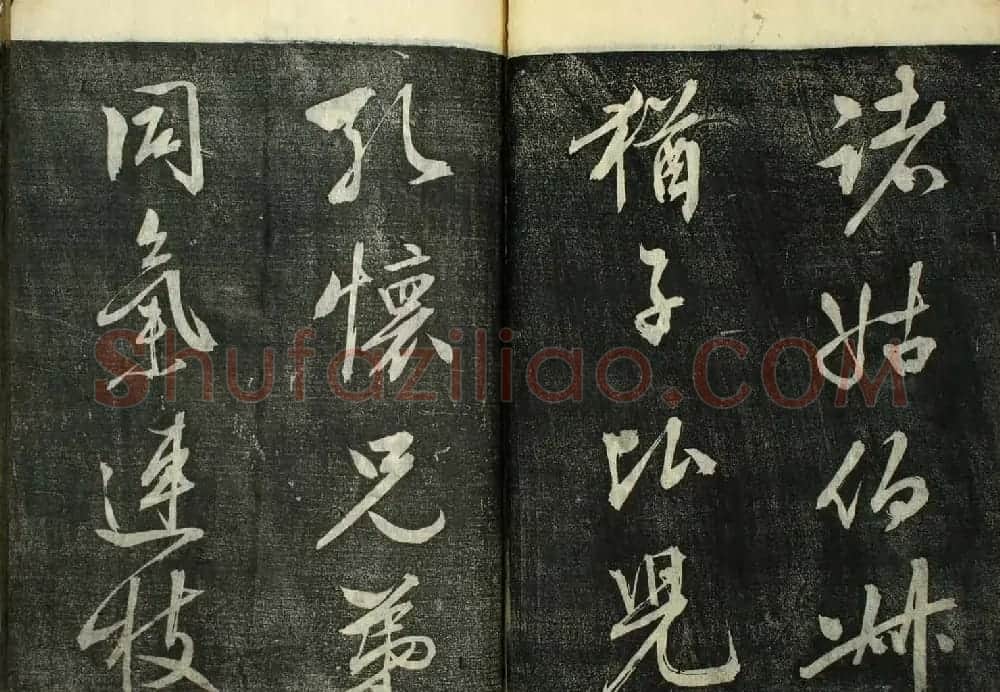 諸姑伯叔
猶子比兒
孔懷兄弟
同氣連枝
Shufaziliao.COM